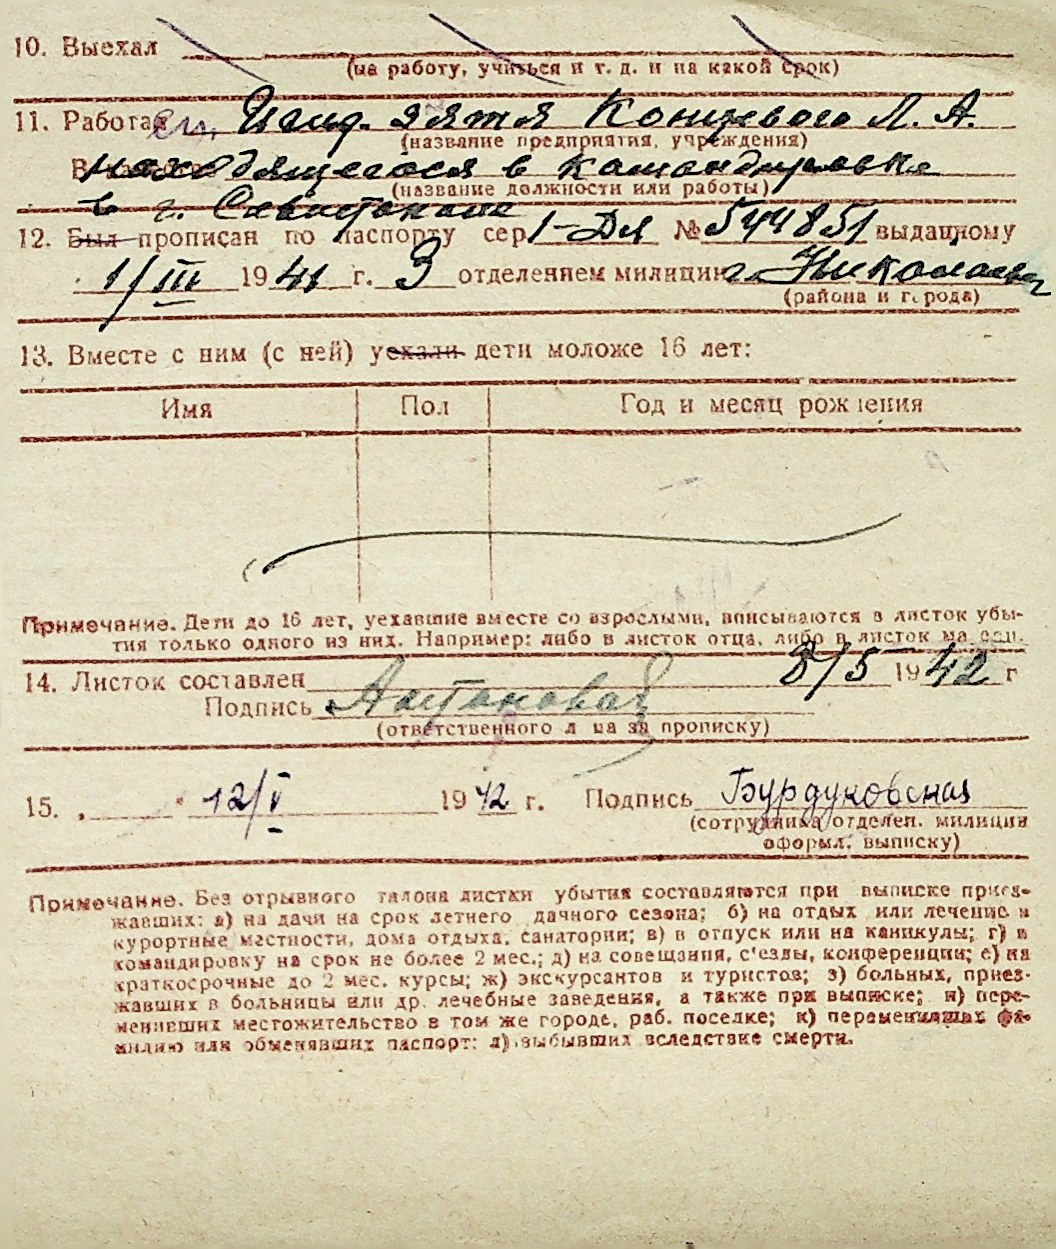 10. Выехал
(на работу, учиться и т. д. и на какой срок)
11. Работал Ижд. зятя Концевого Л. А.
(название предприятия, учреждения)
В находящегося в командировке
(название должности или работы)
в г. Севастополе
12. Был прописан по паспорту сер. 1-Дя № 544851 выданному
1/III 1941 г. 3 отделением милиции г. Николаева
(района и города)
13. Вместе с ним (с ней) уехали дети моложе 16 лет:
Имя Пол Год и месяц рождения
Примечание. Дети до 16 лет, уехавшие вместе со взрослыми, вписываются в листок убы-
тия только одного из них. Например: либо в листок отца, либо в листок матери.
14. Листок составлен 8/5 1942 г
Подпись
(ответственного лица за прописку)
15. 12/V 1942 г. Подпись Бурдуковская
(сотрудника отделен. милиции
оформл. выписку)
Примечание. Без отрывного талона листки убытия составляются при выписке приез-
жавших: а) на дачи на срок летнего дачного сезона; б) на отдых или лечение в
курортные местности, дома отдыха, санатории; в) в отпуск или на каникулы; г) в
командировку на срок не более 2 мес.; д) на совещания, с'езды, конференции; е) на
краткосрочные до 2 мес. курсы; ж) экскурсантов и туристов; з) больных, приез-
жавших в больницы или др. лечебные заведения, а также при выписке; и) пере-
менивших местожительство в том же городе, раб. поселке; к) переменивших фа-
милию или обменявших паспорт; л) выбывших вследствие смерти.